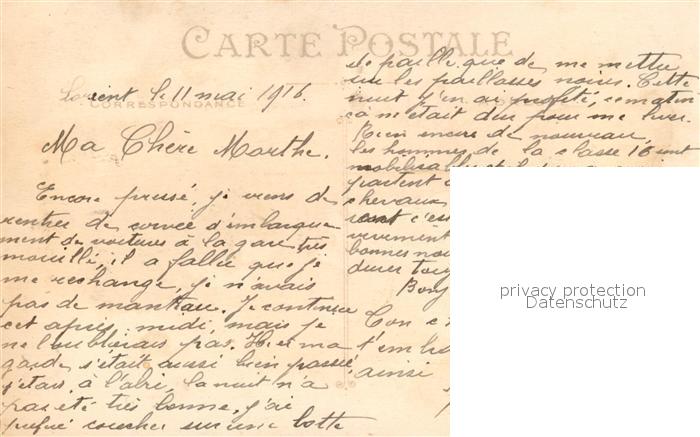 CARTE POSTALE
CORRESPONDANCE
Lorient le 11 mai 1916.
Ma Chère Marthe.
Encore pressé, je viens de
rentrer de corvée d'embarque
ment de voitures à la gare très
mouillé, il a fallu que je
me rechange, je n'avais
pas de manteau. Je continue
cet après midi, mais je
ne t'oublierais pas. Hier ma
garde s'était aussi bien passée
j'étais à l'abri, la nuit n'a
pas été très bonne, j'ai
préféré coucher sur une botte
de paille que de me mettre
sur les paillasses noires. Cette
nuit j'en ai profité, ce matin
ça m'était dur pour me lever.
Rien encore de nouveau,
les hommes de la classe 16 sont
mobilisables et
partent
chevaux
sont c'est
bonnes nou
durer touj
Bonj
Ton
t'emb
ainsi
privacy protection
Datenschutz